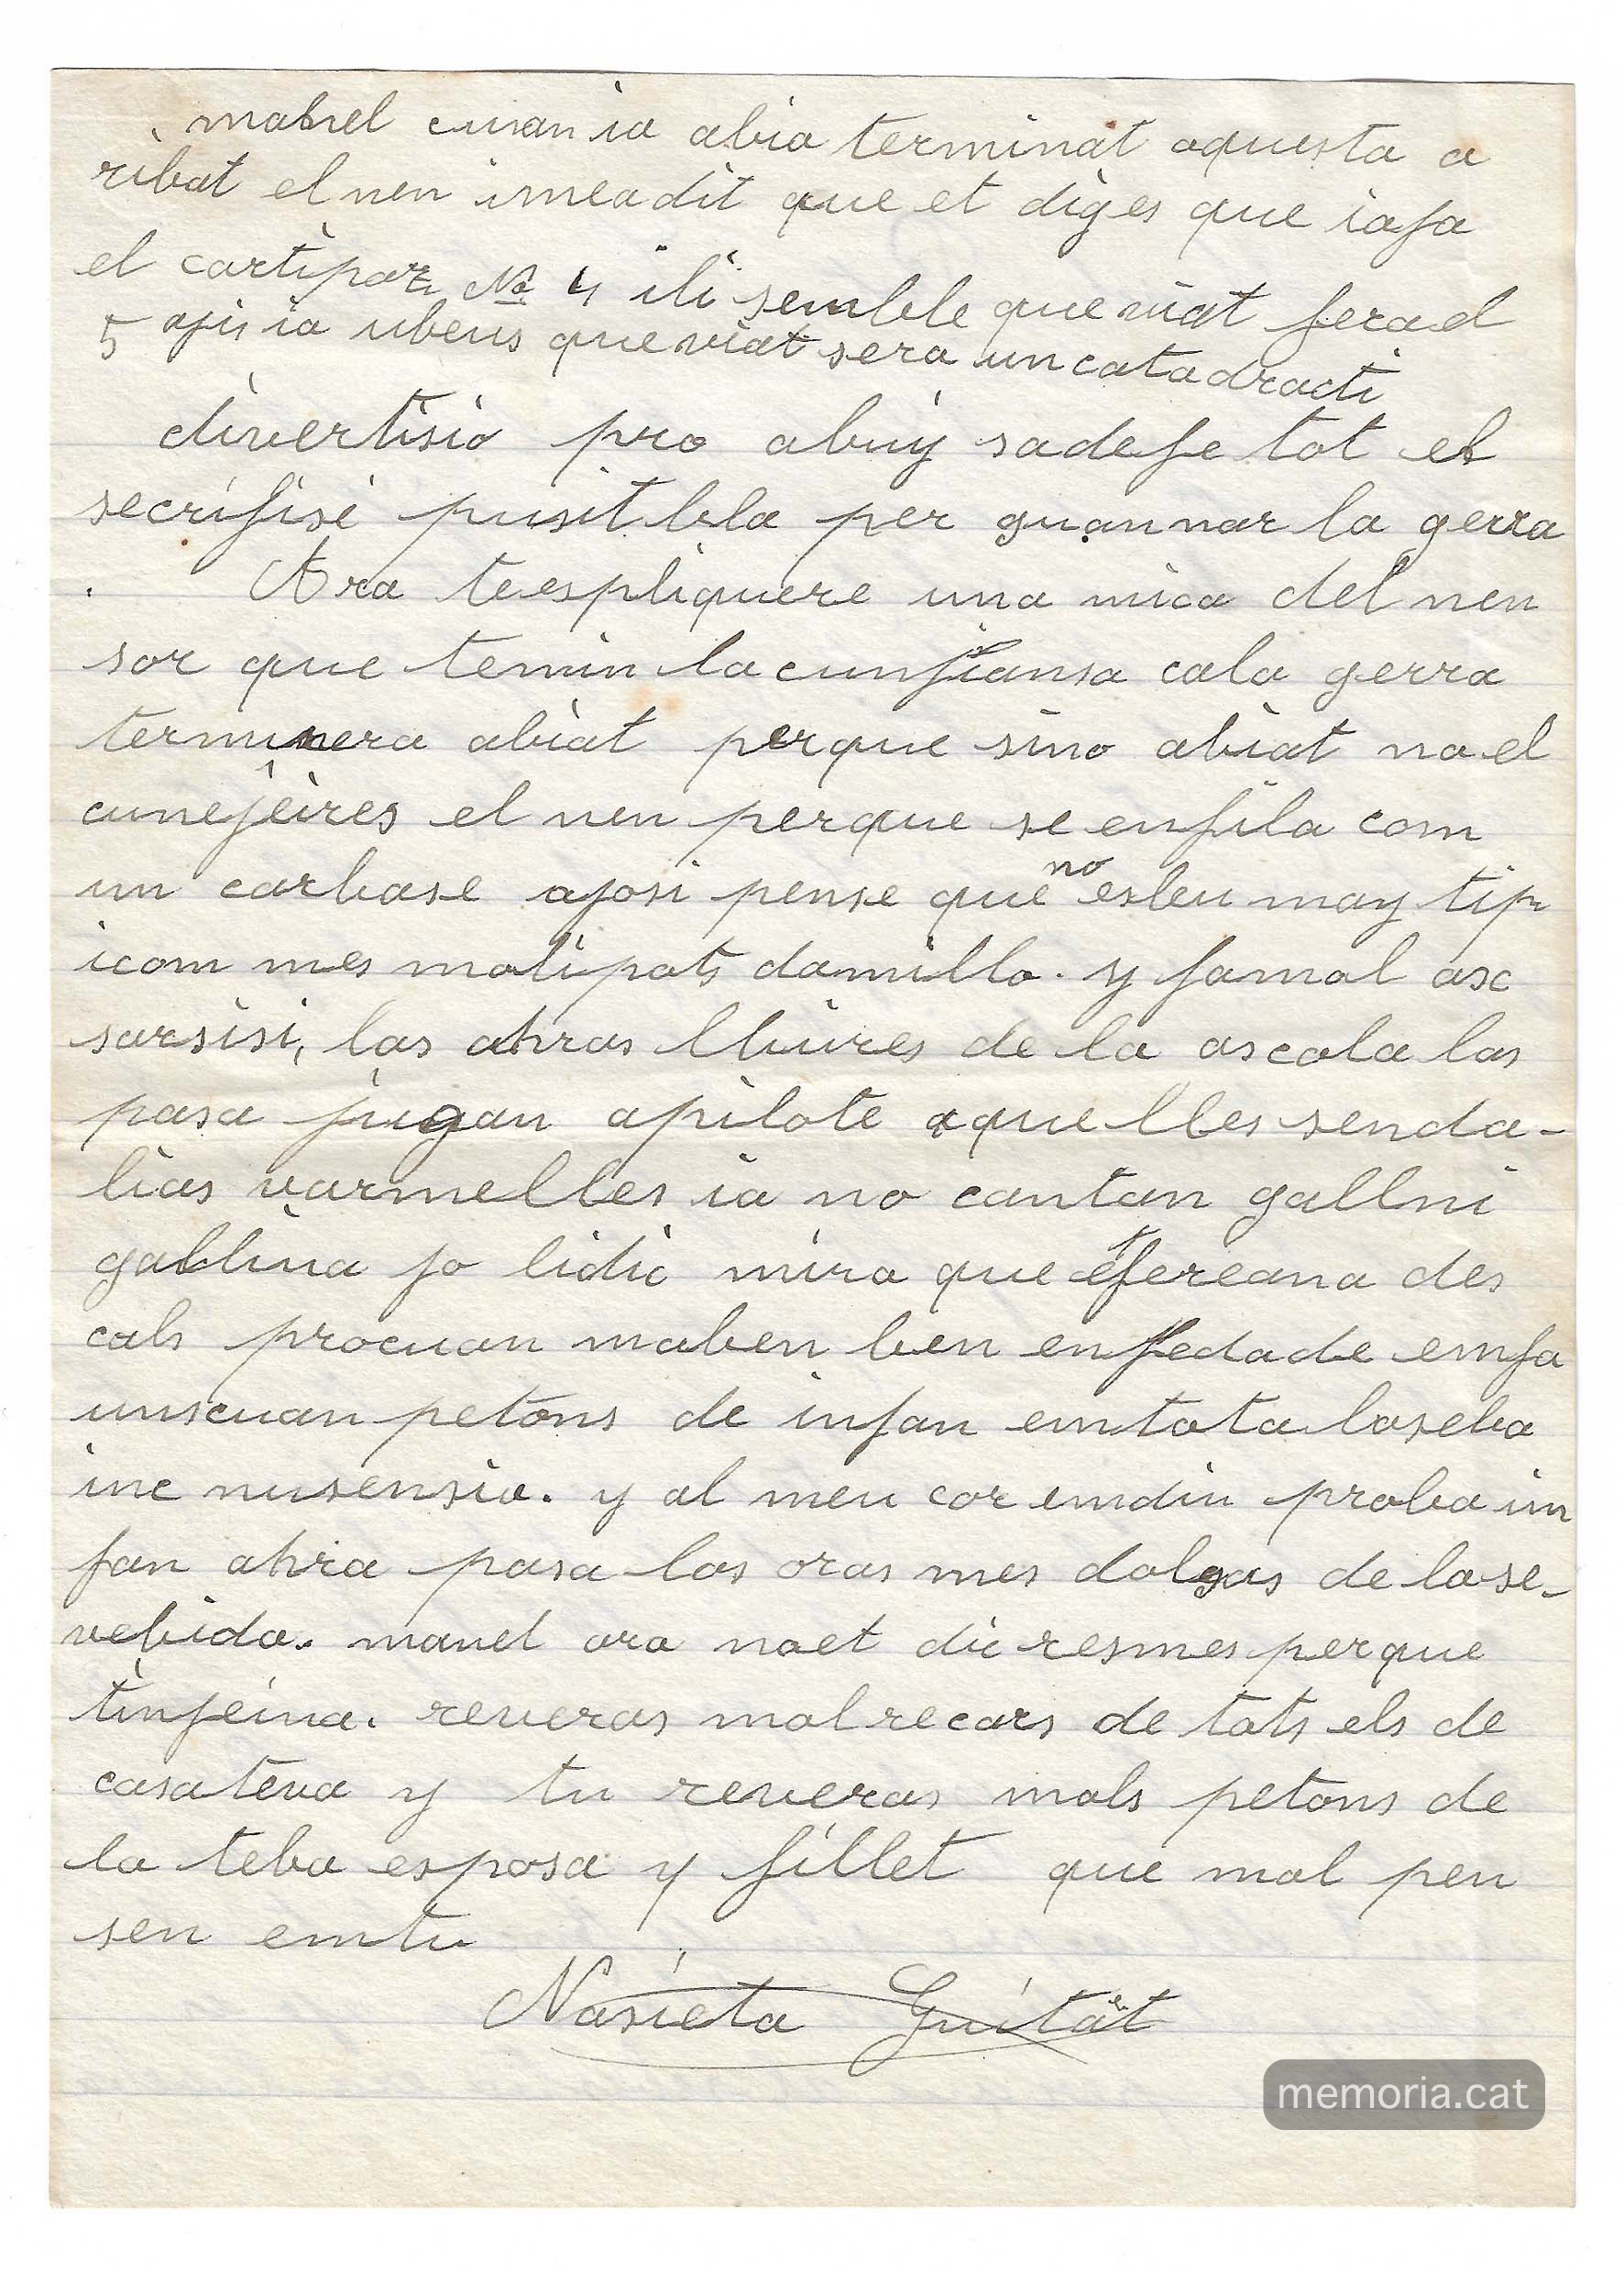 mabnel cuan ia abia terminat aquesta a
ribat el nen imeadit que et diges que iafa
el cartipaz Nº 4 ili semble que viat fera el
5 afis ia ubeus que viat sera un catadracti
divertisio pro abuy sadefe tot el
secrifisi pusitbla per guannar la gerra
Ara teespliquere una mica del nen
sor que tenin la cunfiansa cala gerra
terminera abiat perque sino abiat no el
cunejeires el nen perque se enfila com
un carbase afosi pense que no esleu may tip
icom mes molipots damillo. y famol asc
sarsisi, las ahras lliures de la ascola las
pasa jugan apilote aquelles senda-
lias varmelles ia no cantan gallni
gallina jo lidic mira que efereana des
cals procuan maben ben enfedade emfa
unscuan petons de infan emtota laseba
inc nusensia. y al meu cor emdin proba im
fan ahra pasa las oras mes dolsas de lase-
vebida. manel ara noet dic resmes perque
tinfeina. reveras mol recars de tots els de
casateva y tu reveras mols petons de
la teba esposa y fillet que mol pen
sen emtu
Nasieta Guitat
memoria.cat